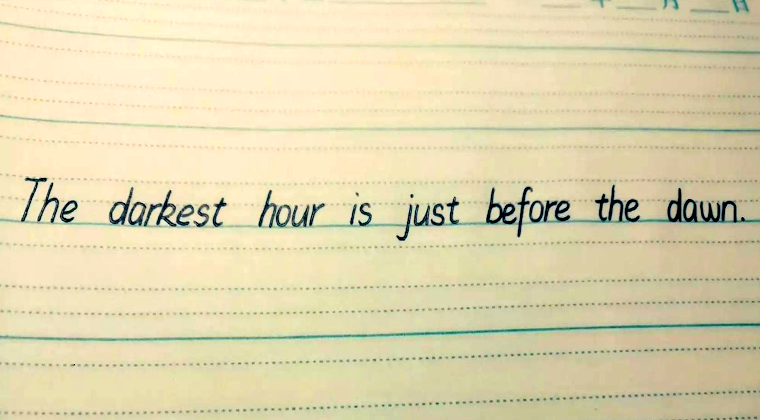 The darkest hour is just before the dawn.